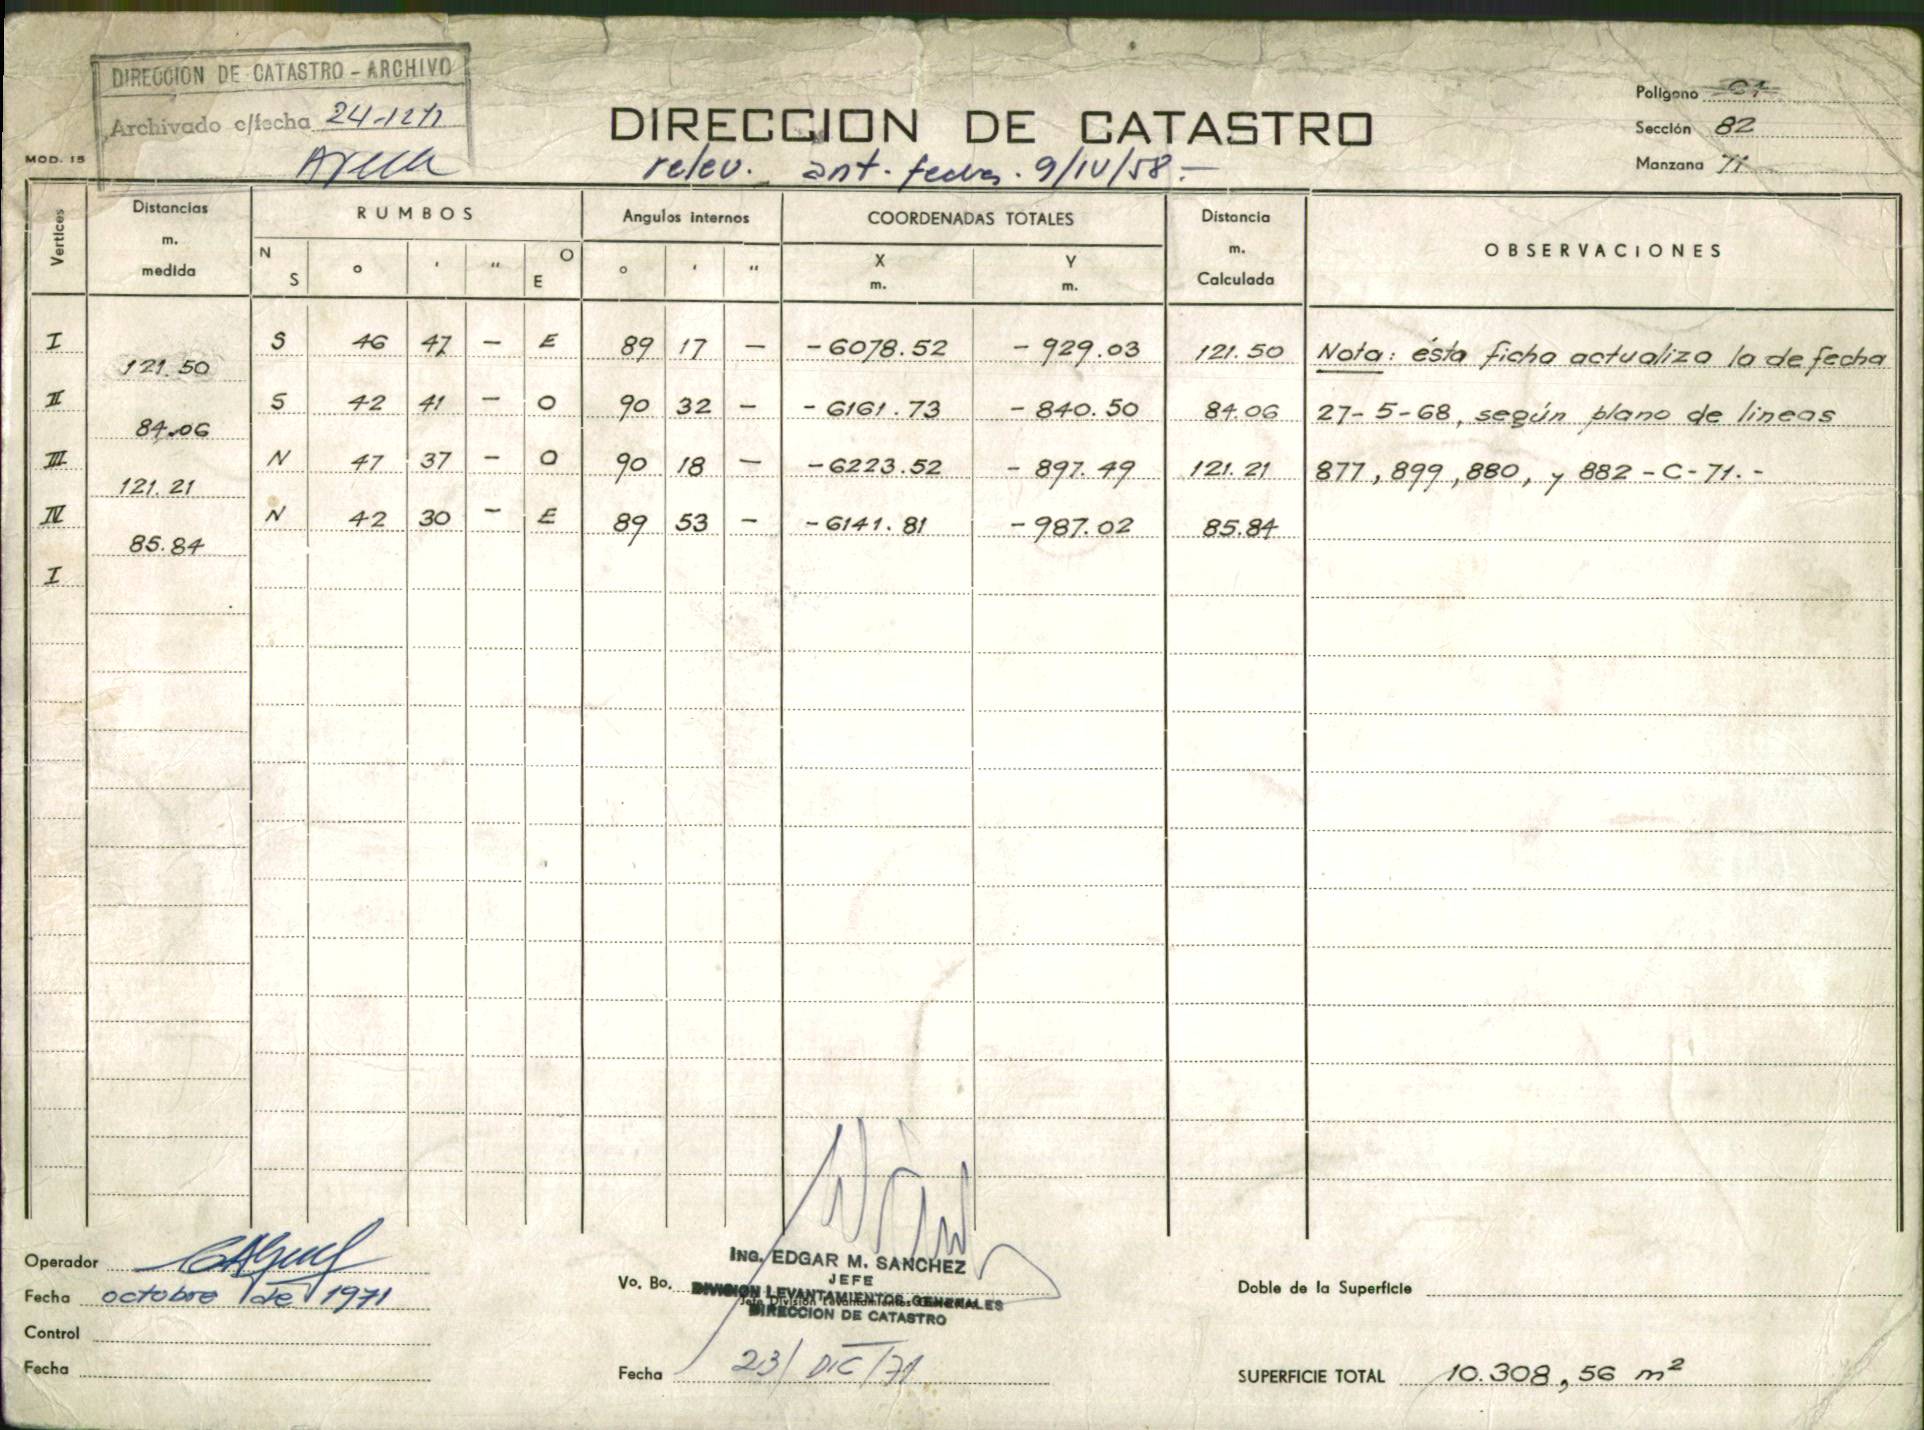 DIRECCION DE CATASTRO - ARCHIVO
Archivado c/fecha 24-12-71
MOD. 15
DIRECCION DE CATASTRO
relev. ant. fecha. 9/IV/58.-
Polígono 01
Sección 82
Manzana 71
Vertices
Distancias m. medida
RUMBOS
N S ° ' " O E
Angulos internos
° ' "
COORDENADAS TOTALES
X m. Y m.
Distancia m. Calculada
OBSERVACIONES
I S 46 47 - E 89 17 - -6078.52 -929.03 121.50 Nota: ésta ficha actualiza la de fecha
121.50
II S 42 41 - O 90 32 - -6161.73 -840.50 84.06 27-5-68, según plano de lineas
84.06
III N 47 37 - O 90 18 - -6223.52 -897.49 121.21 877, 899, 880, y 882-C-71.-
121.21
IV N 42 30 - E 89 53 - -6141.81 -987.02 85.84
85.84
I
Operador
Fecha octubre de 1971
Control
Fecha
Vo. Bo.
ING. EDGAR M. SANCHEZ
JEFE
DIVISION LEVANTAMIENTOS GENERALES
Jefe División Levantamientos
DIRECCION DE CATASTRO
Fecha 23/DIC/71
Doble de la Superficie
SUPERFICIE TOTAL 10.308,56 m²